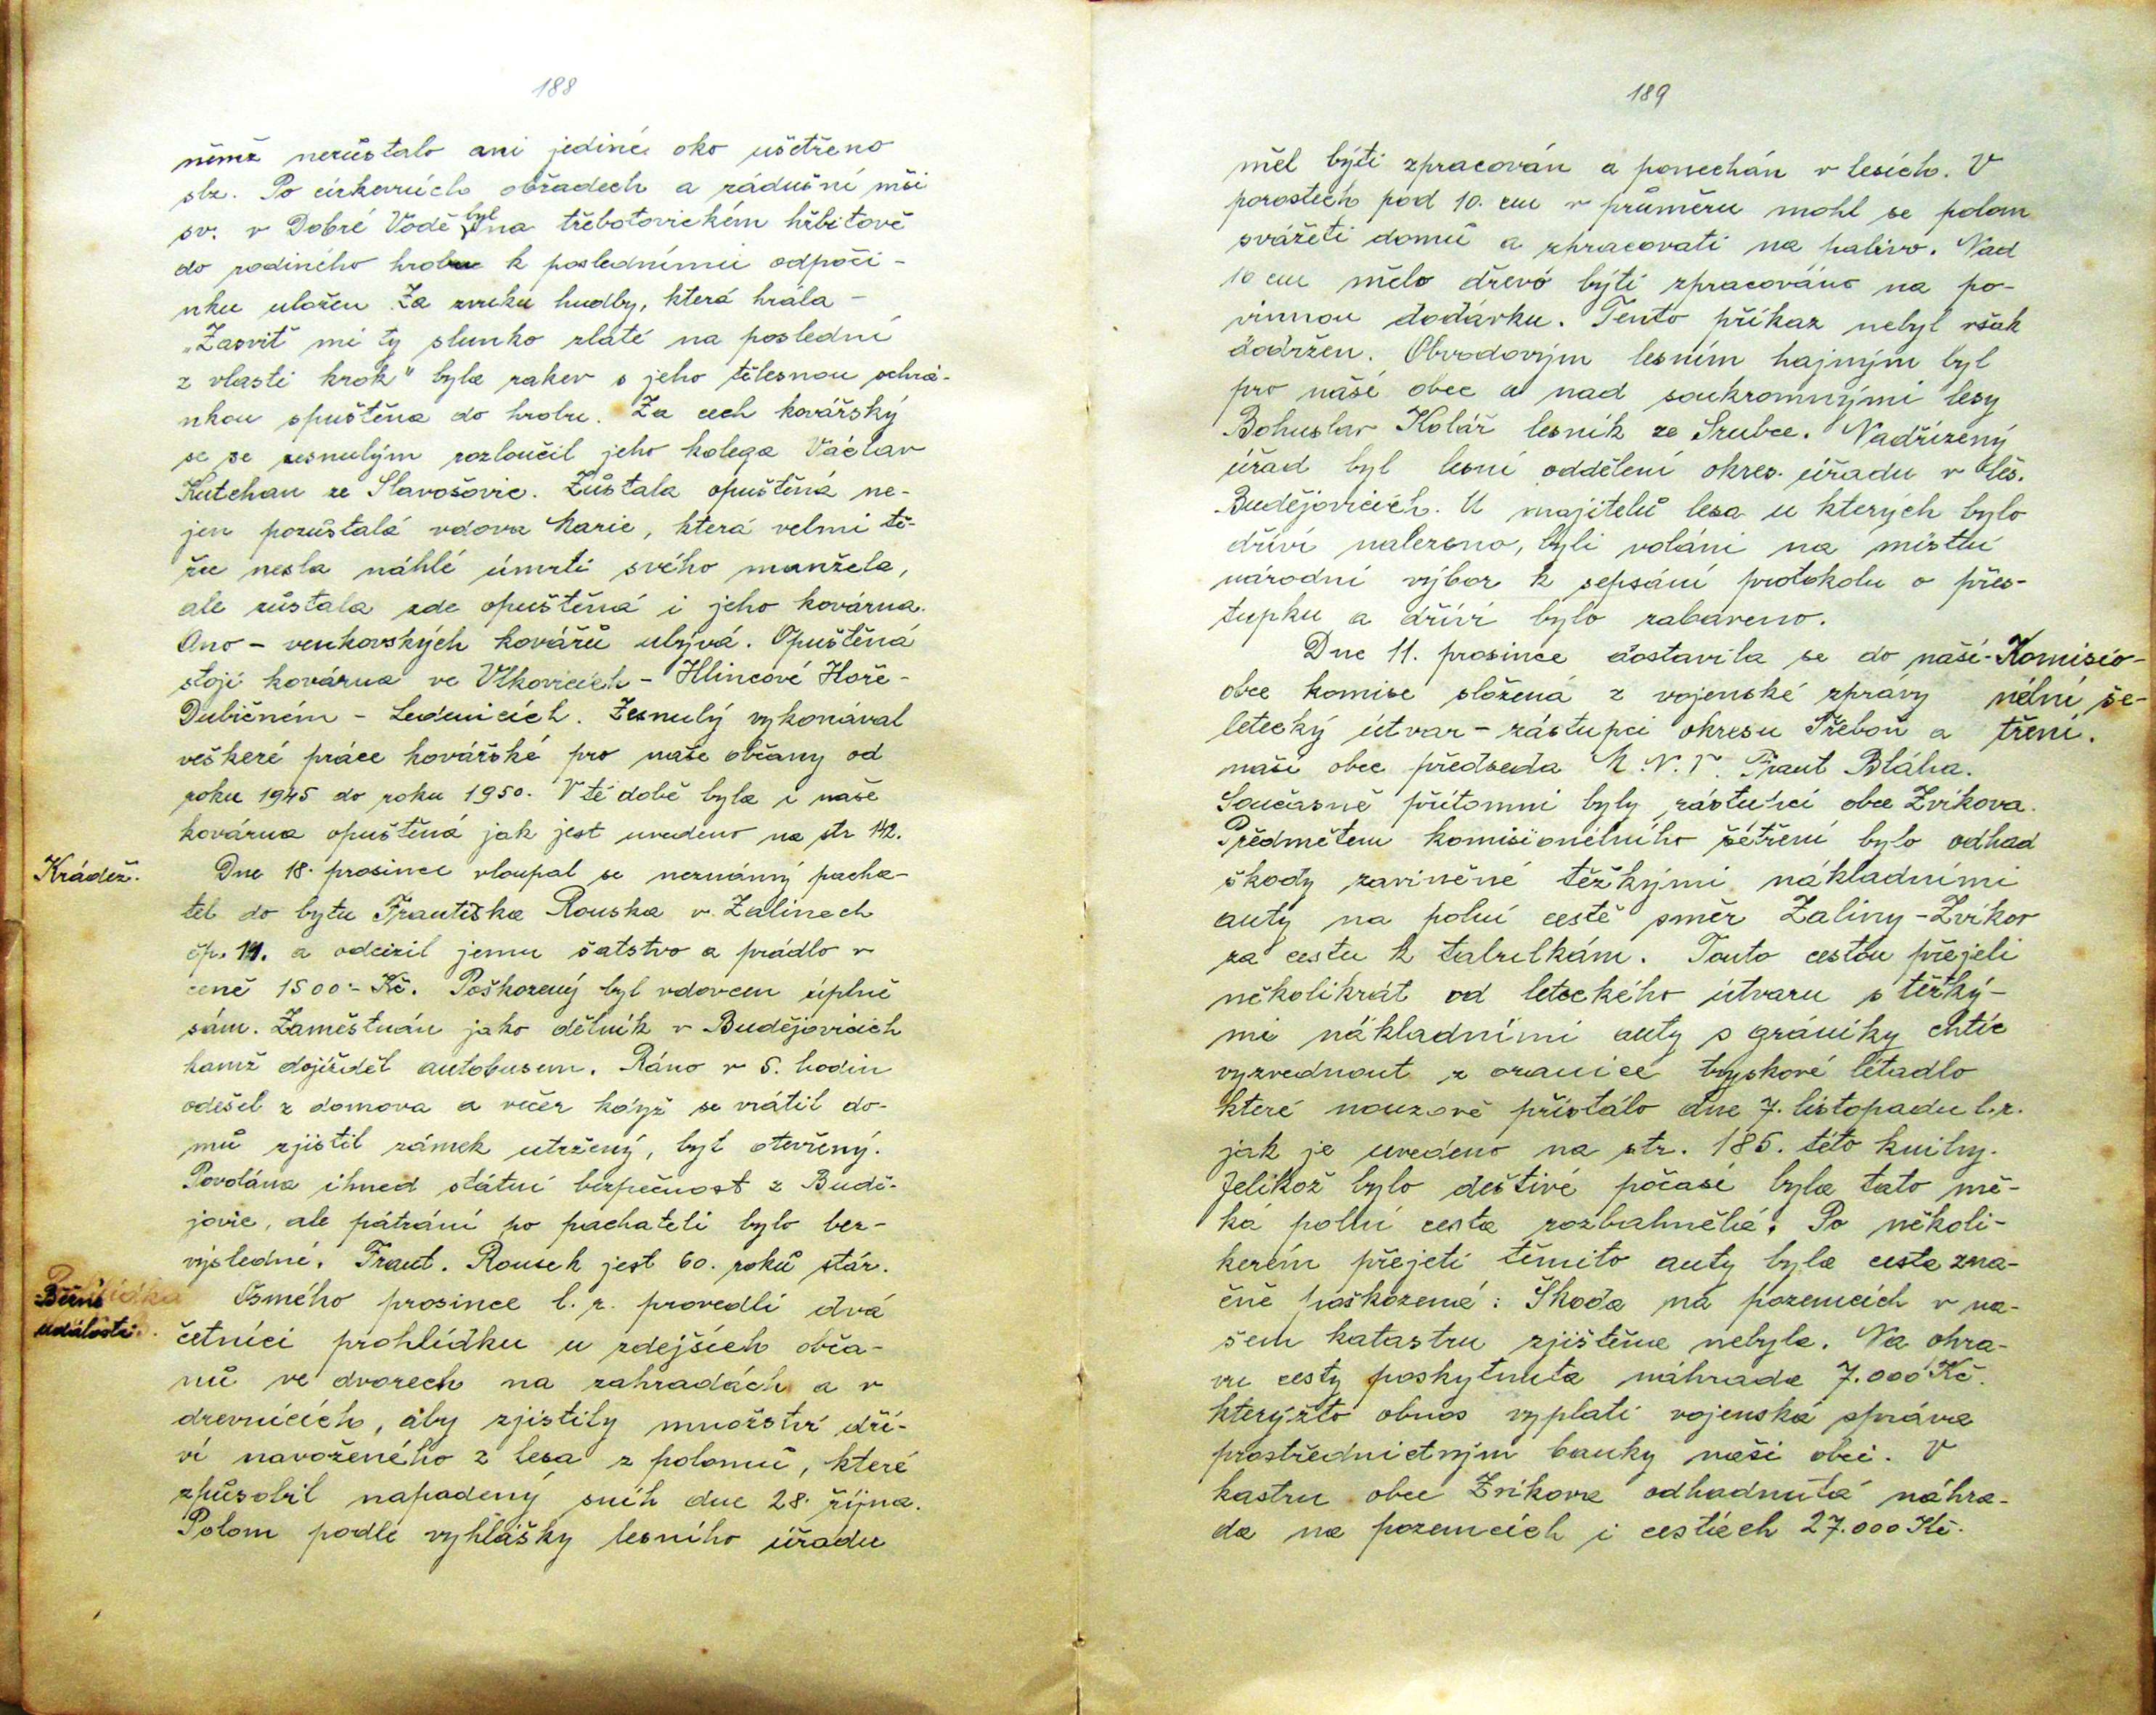 188
němž nezůstalo ani jediné oko ušetřeno
slz. Po církevních obřadech a zádušní mši
sv. v Dobré Vodě byl na třebotovickém hřbitově
do rodiného hrobu k poslednímu odpoči-
nku uložen. Za zvuku hudby, která hrála -
„Zasviť mi ty slunko zlaté na poslední
z vlasti krok" byla rakev s jeho tělesnou schrá-
nkou spuštěna do hrobu. Za cech kovářský
se se zesnulým rozloučil jeho kolega Václav
Kutchan ze Slavošovic. Zůstala opuštěná ne-
jen pozůstalá vdova Marie, která velmi tě-
žce nesla náhlé úmrtí svého manžela,
ale zůstala zde opuštěná i jeho kovárna.
Ano - venkovských kovářů ubývá. Opuštěná
stojí kovárna ve Vlkovicích - Hlincové Hoře -
Dubičném - Ledenicích. Zesnulý vykonával
veškeré práce kovářské pro naše občany od
roku 1945 do roku 1950. V té době byla i naše
kovárna opuštěná jak jest uvedeno na str 142.
Krádež.
Dne 18. prosince vloupal se neznámý pacha-
tel do bytu Františka Rouska v Zalinech
čp. 11. a odcizil jemu šatstvo a prádlo v
ceně 1500.- Kč. Poškozený byl vdovcem úplně
sám. Zaměstnán jako dělník v Budějovicích
kamž dojížděl autobusem. Ráno v 5. hodin
odešel z domova a večer když se vrátil do-
mů zjistil zámek utržený, byt otevřený.
Povolána ihned státní bezpečnost z Budě-
jovic, ale pátrání po pachateli bylo bez-
výsledné. Frant. Rousek jest 60. roků stár.
Běžné
události.
Osmého prosince l. r. provedli dvá
četníci prohlídku u zdejších obča-
nů ve dvorech na zahradách a v
drevnících, aby zjistily množství dří-
ví navoženého z lesa z polomů, které
způsobil napadený sníh dne 28. října.
Polom podle vyhlášky lesního úřadu
189
měl býti zpracován a ponechán v lesích. V
porostech pod 10. cm v průměru mohl se polom
svážeti domů a zpracovati na palivo. Nad
10 cm mělo dřevo býti zpracováno na po-
vinnou dodávku. Tento příkaz nebyl však
dodržen. Obvodovým lesním hajným byl
pro naší obec a nad soukromnými lesy
Bohuslav Kolář lesník ze Srubce. Nadřízený
úřad byl lesní oddělení okres. úřadu v Čes.
Budějovicích. U majitelů lesa u kterých bylo
dříví nalezeno, byli voláni na místní
národní výbor k sepsání protokolu o přes-
tupku a dříví bylo zabaveno.
Dne 11. prosince dostavila se do naší
Komisio-
nélní še-
tření.
obce komise složená z vojenské zprávy
letecký útvar - zástupci okresu Třeboň a
naší obce předseda M. N. V. Frant Bláha.
Současně přítomni byly zástupci obce Zvíkova.
Předmětem komisionélního šetření bylo odhad
škody zaviněné těžkými nákladními
auty na polní cestě směr Zaliny - Zvíkov
za cestu k tabulkám. Touto cestou přejeli
několikrát od leteckého útvaru s těžký-
mi nákladními auty s gráníky chtíc
vyzvednout z oranice tryskové létadlo
které nouzově přistálo dne 7. listopadu l. r.
jak je uvedeno na str. 185. této knihy.
Jelikož bylo deštivé počasí byla tato mě-
ká polní cesta rozbahnělé. Po několi-
kerém přejetí těmito auty byla cesta zna-
čně poškozená: Škoda na pozemcích v na-
šem katastru zjištěna nebyla. Na ohra-
vu cesty poskytnuta náhrada 7.000 Kč.
kterýžto obnos vyplatí vojenská správa
prostřednictvým banky naší obci. V
kastru obce Zvíkova odhadnutá náhra-
da na pozemcích i cestách 27.000 Kč.